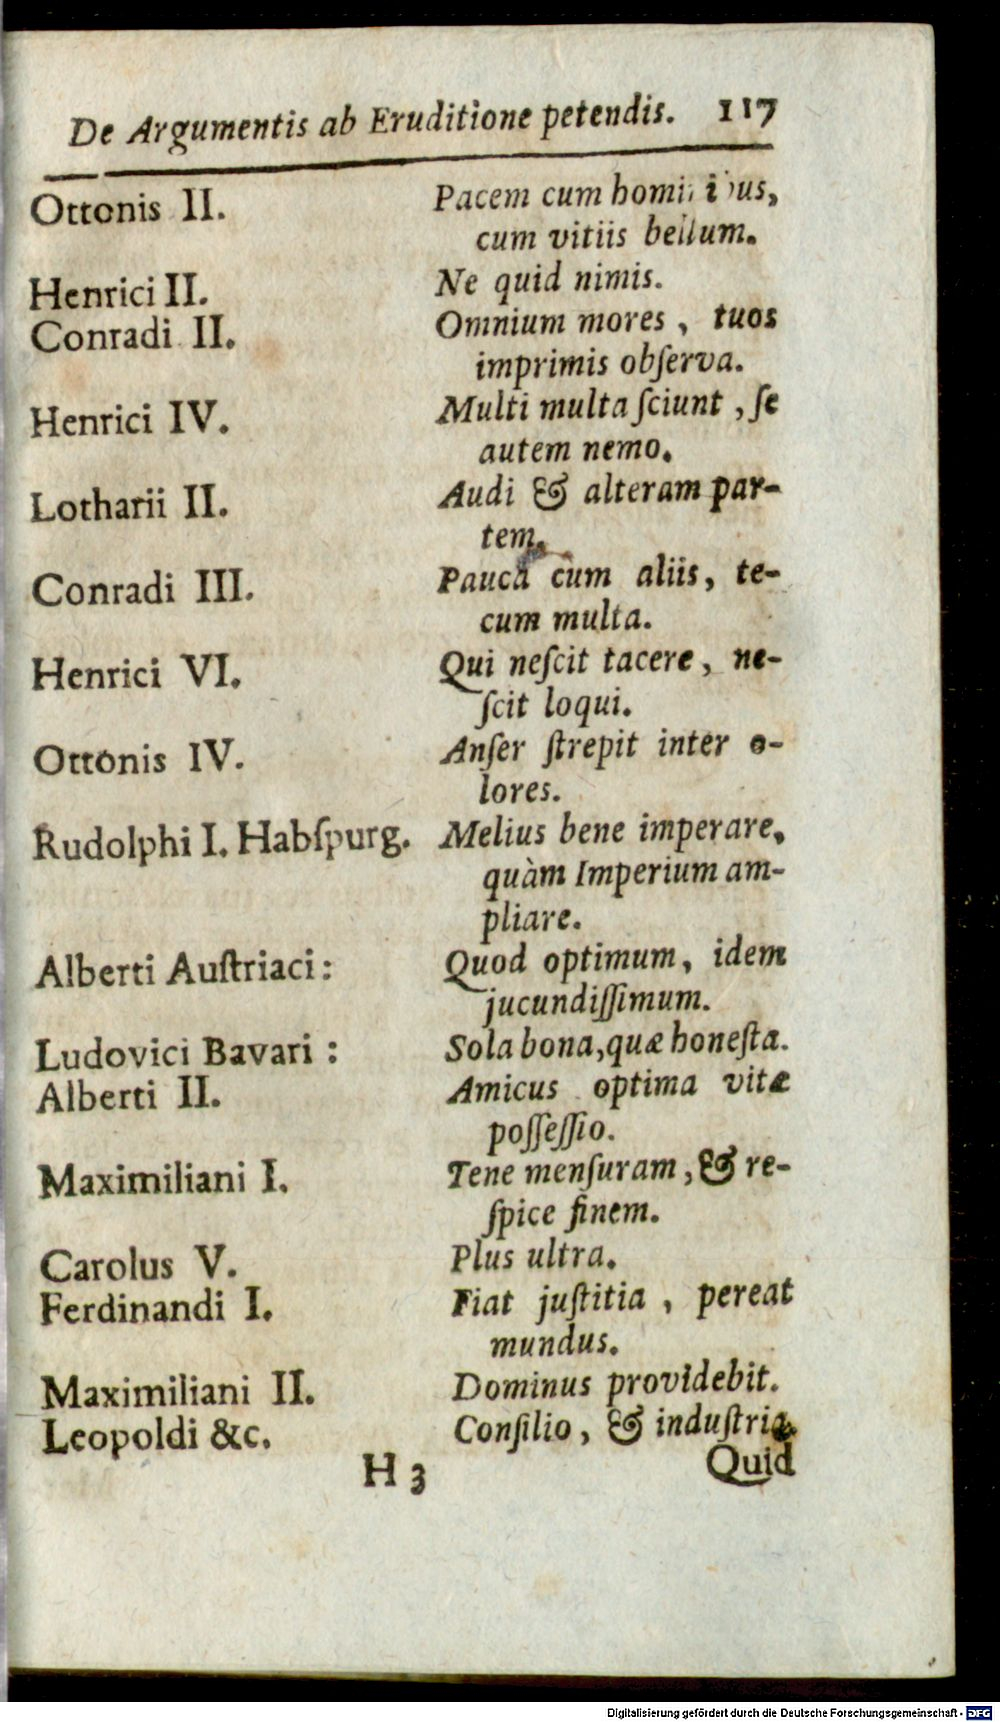 De Argumentis ab Eruditione petendis. 117
Ottonis II. Pacem cum hominibus,
cum vitiis bellum.
Henrici II. Ne quid nimis.
Conradi II. Omnium mores, tuos
imprimis obſerva.
Henrici IV. Multi multa ſciunt, ſe
autem nemo.
Lotharii II. Audi & alteram par-
tem.
Conradi III. Pauca cum aliis, te-
cum multa.
Henrici VI. Qui neſcit tacere, ne-
ſcit loqui.
Ottonis IV. Anſer ſtrepit inter o-
lores.
Rudolphi I. Habſpurg. Melius bene imperare,
quàm Imperium am-
pliare.
Alberti Auſtriaci: Quod optimum, idem
jucundiſſimum.
Ludovici Bavari: Sola bona, quæ honeſta.
Alberti II. Amicus optima vitæ
poſſeſſio.
Maximiliani I. Tene menſuram, & re-
ſpice finem.
Carolus V. Plus ultra.
Ferdinandi I. Fiat juſtitia, pereat
mundus.
Maximiliani II. Dominus providebit.
Leopoldi &c. Conſilio, & induſtria.
H 3 Quid
Digitalisierung gefördert durch die Deutsche Forschungsgemeinschaft - DFG